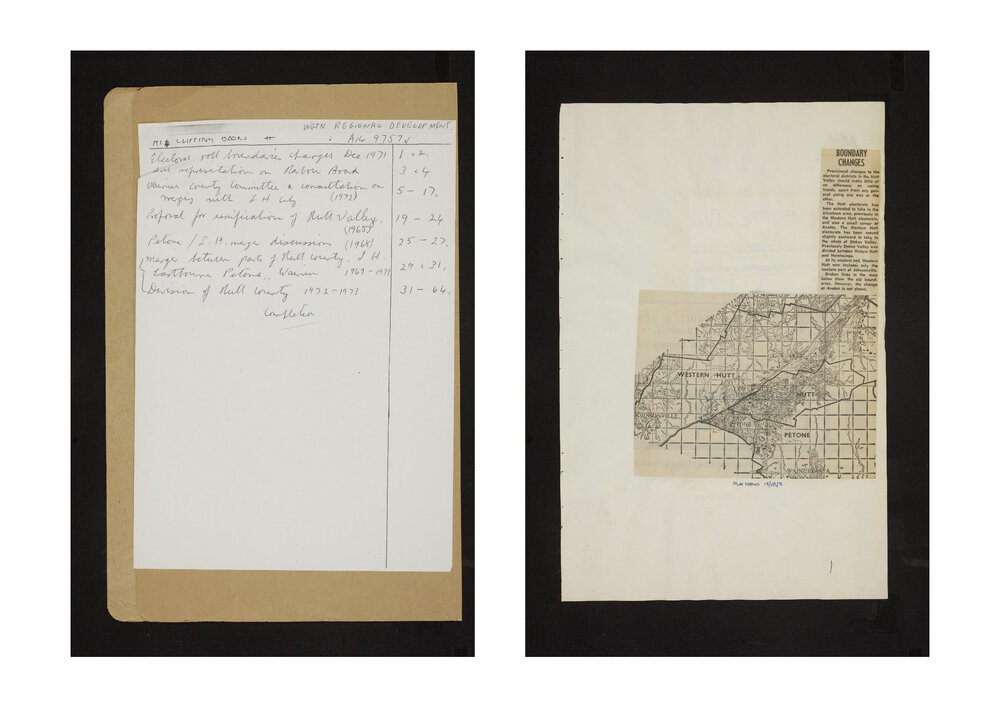 WGTN REGIONAL DEVELOPMENT.
CLIPPING BOOKS # : A14 9757
Electoral roll boundaries changes Dec 1971 1 + 2.
and representation on Harbour Board 3 + 4
county Committee & consultation on
merger with L.H. City (1972) 5 - 17.
Proposal for unification of Hutt Valley. 19 - 24
(1965)
Petone / L.H. merger discussion (1968) 25 - 27.
merger between parts of Hutt County, L.H.
Eastbourne Petone, Wainui 1969 - 1973 29 + 31.
Division of Hutt County 1972 - 1973 31 - 64.
Completion
BOUNDARY
CHANGES
Provisional changes to the
electoral districts in the Hutt
Valley should make little or
no difference on voting
trends, apart from any gen-
eral swing one way or the
other.
The Hutt electorate has
been extended to take in the
Alicetown area, previously in
the Western Hutt electorate,
and also a small corner at
Avalon. The Western Hutt
electorate has been moved
slightly eastward to take in
the whole of Stokes Valley.
Previously Stokes Valley was
divided between Western Hutt
and Heretaunga.
At its western end, Western
Hutt now includes only the
western part of Johnsonville.
Broken lines in the map
below show the old bound-
aries. However, the change
at Avalon is not shown.
WESTERN HUTT
HUTT
JOHNSONVILLE
PETONE
WAINUIOMATA
Hutt News
1